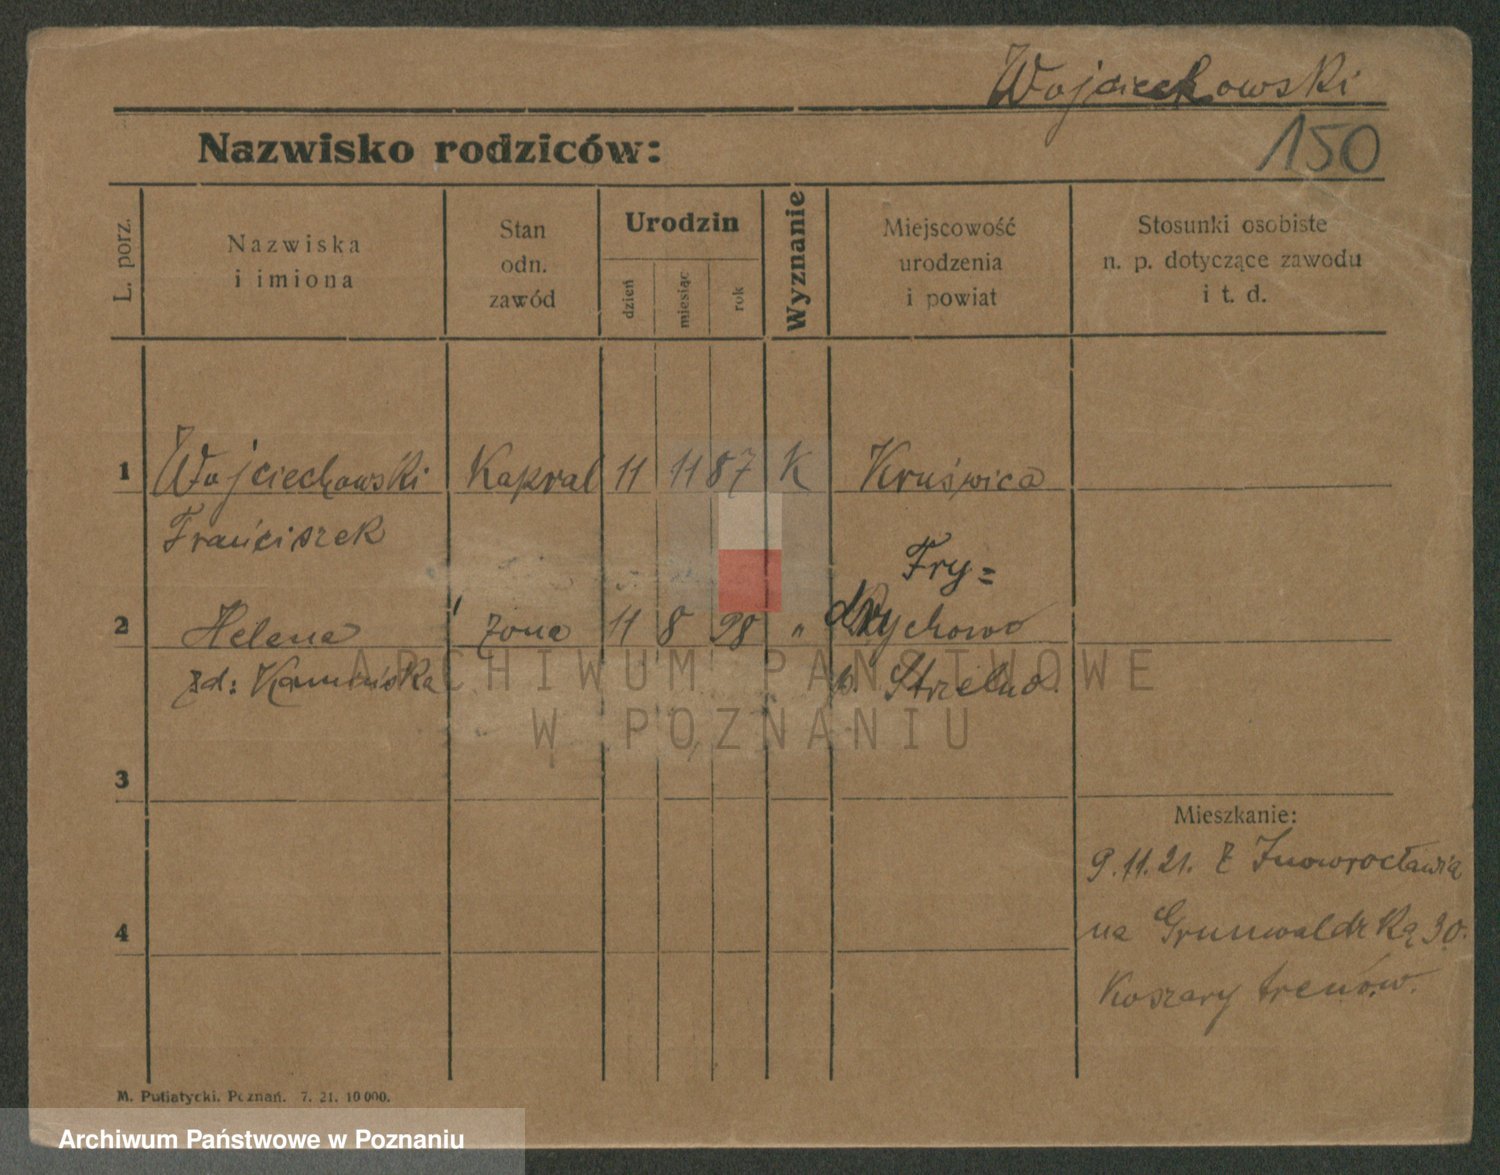 Wojciechowski
150
Nazwisko rodziców:
L. porz.
Nazwiska
i imiona
Stan
odn.
zawód
Urodzin
dzień
miesiąc
rok
Wyznanie
Miejscowość
urodzenia
i powiat
Stosunki osobiste
n. p. dotyczące zawodu
i t. d.
1 Wojciechowski Kapral 11 11 87 K Kruświca
Franciszek
Fry=
2 Helena żona 11 8 98 " drychowo
zd: Kamińska p. Strzelno.
ARCHIWUM PAŃSTWOWE
W POZNANIU
3
Mieszkanie:
9.11.21. z Inowrocławia
4
na Grunwaldzką 30.
Koszary trenów.
M. Putiatycki. Poznań. 7. 21. 10 000.
Archiwum Państwowe w Poznaniu